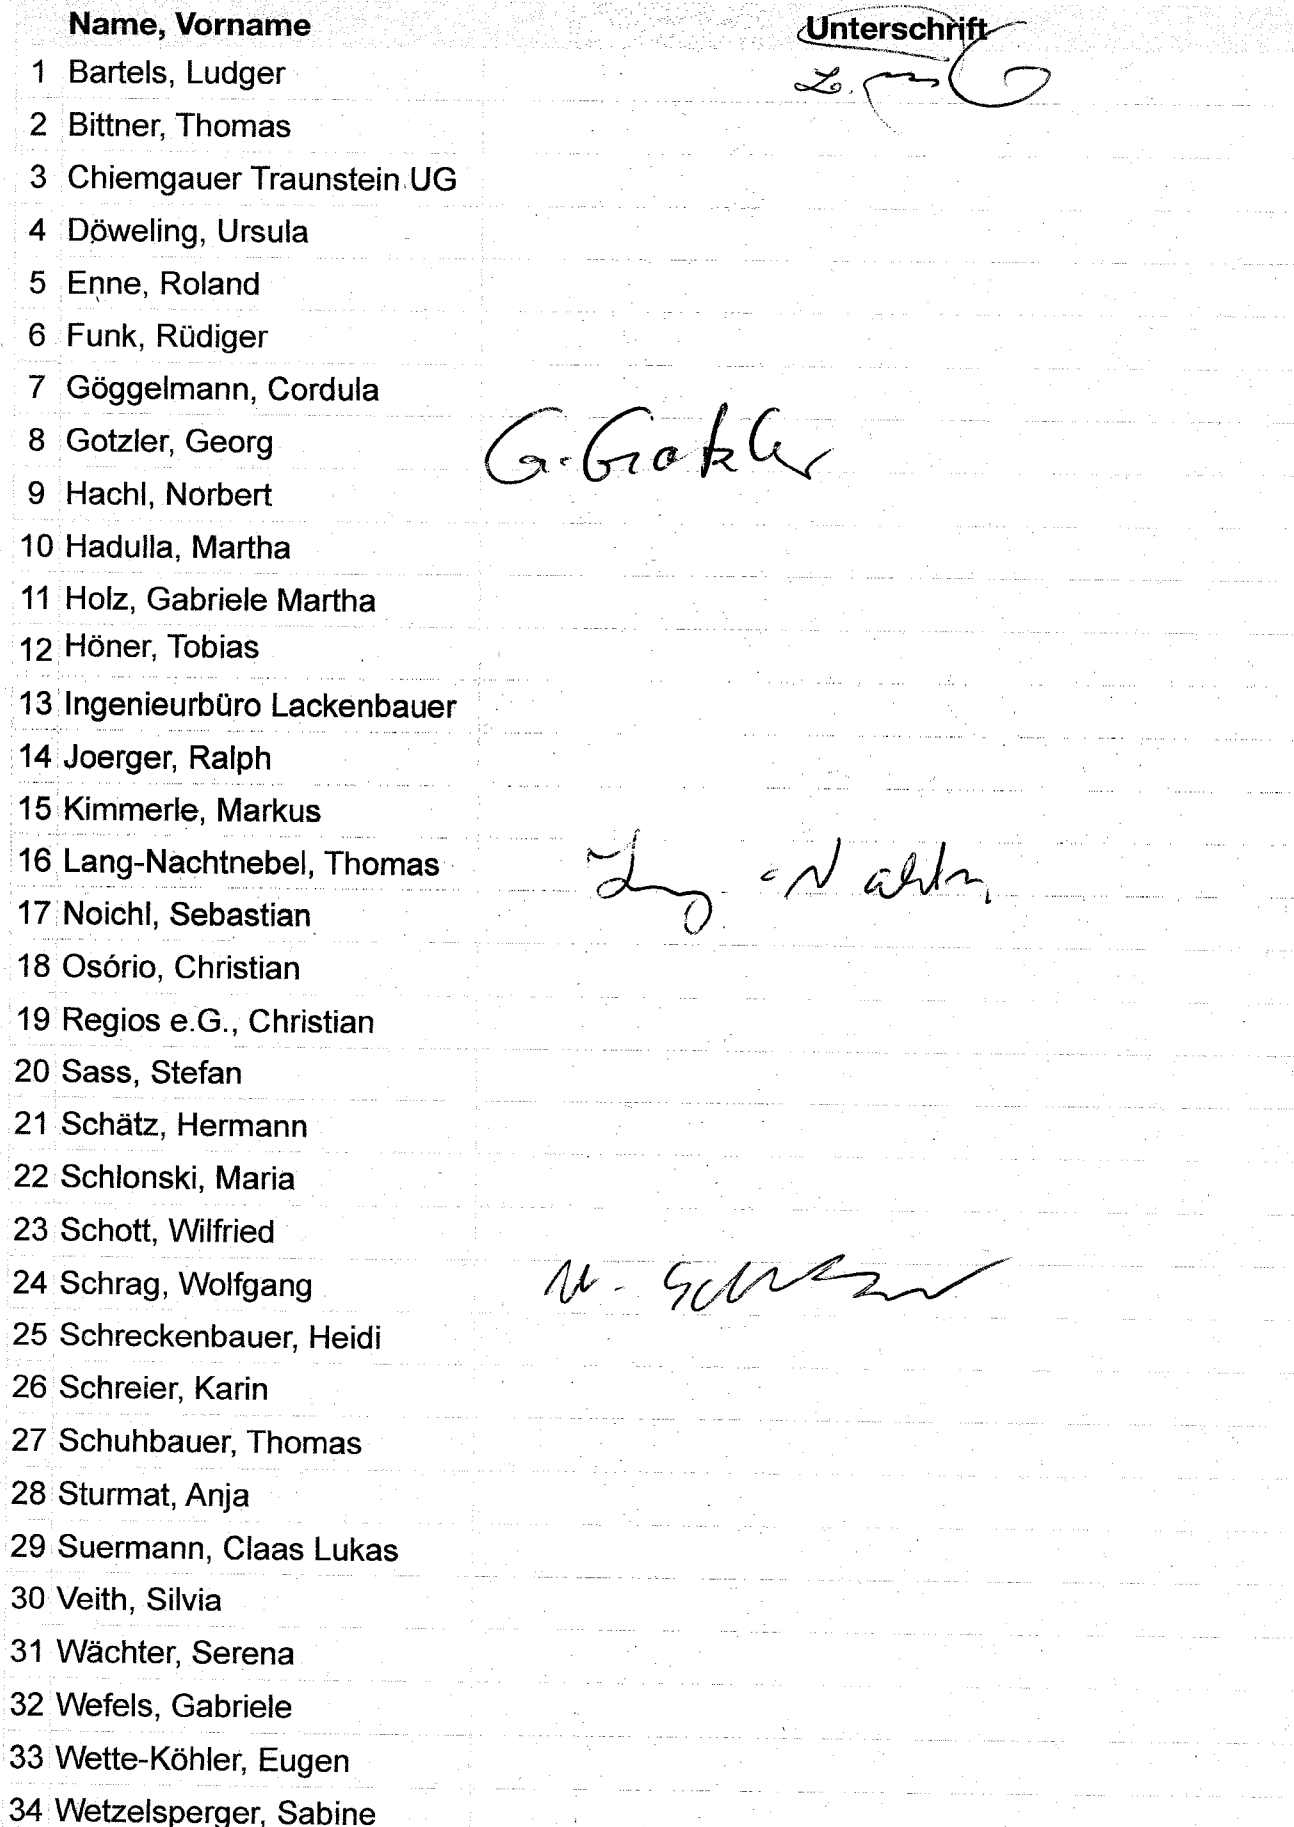 Name, Vorname Unterschrift
1 Bartels, Ludger
2 Bittner, Thomas
3 Chiemgauer Traunstein UG
4 Döweling, Ursula
5 Enne, Roland
6 Funk, Rüdiger
7 Göggelmann, Cordula
8 Gotzler, Georg G. Gotzler
9 Hachl, Norbert
10 Hadulla, Martha
11 Holz, Gabriele Martha
12 Höner, Tobias
13 Ingenieurbüro Lackenbauer
14 Joerger, Ralph
15 Kimmerle, Markus
16 Lang-Nachtnebel, Thomas
17 Noichl, Sebastian
18 Osório, Christian
19 Regios e.G., Christian
20 Sass, Stefan
21 Schätz, Hermann
22 Schlonski, Maria
23 Schott, Wilfried
24 Schrag, Wolfgang
25 Schreckenbauer, Heidi
26 Schreier, Karin
27 Schuhbauer, Thomas
28 Sturmat, Anja
29 Suermann, Claas Lukas
30 Veith, Silvia
31 Wächter, Serena
32 Wefels, Gabriele
33 Wette-Köhler, Eugen
34 Wetzelsperger, Sabine